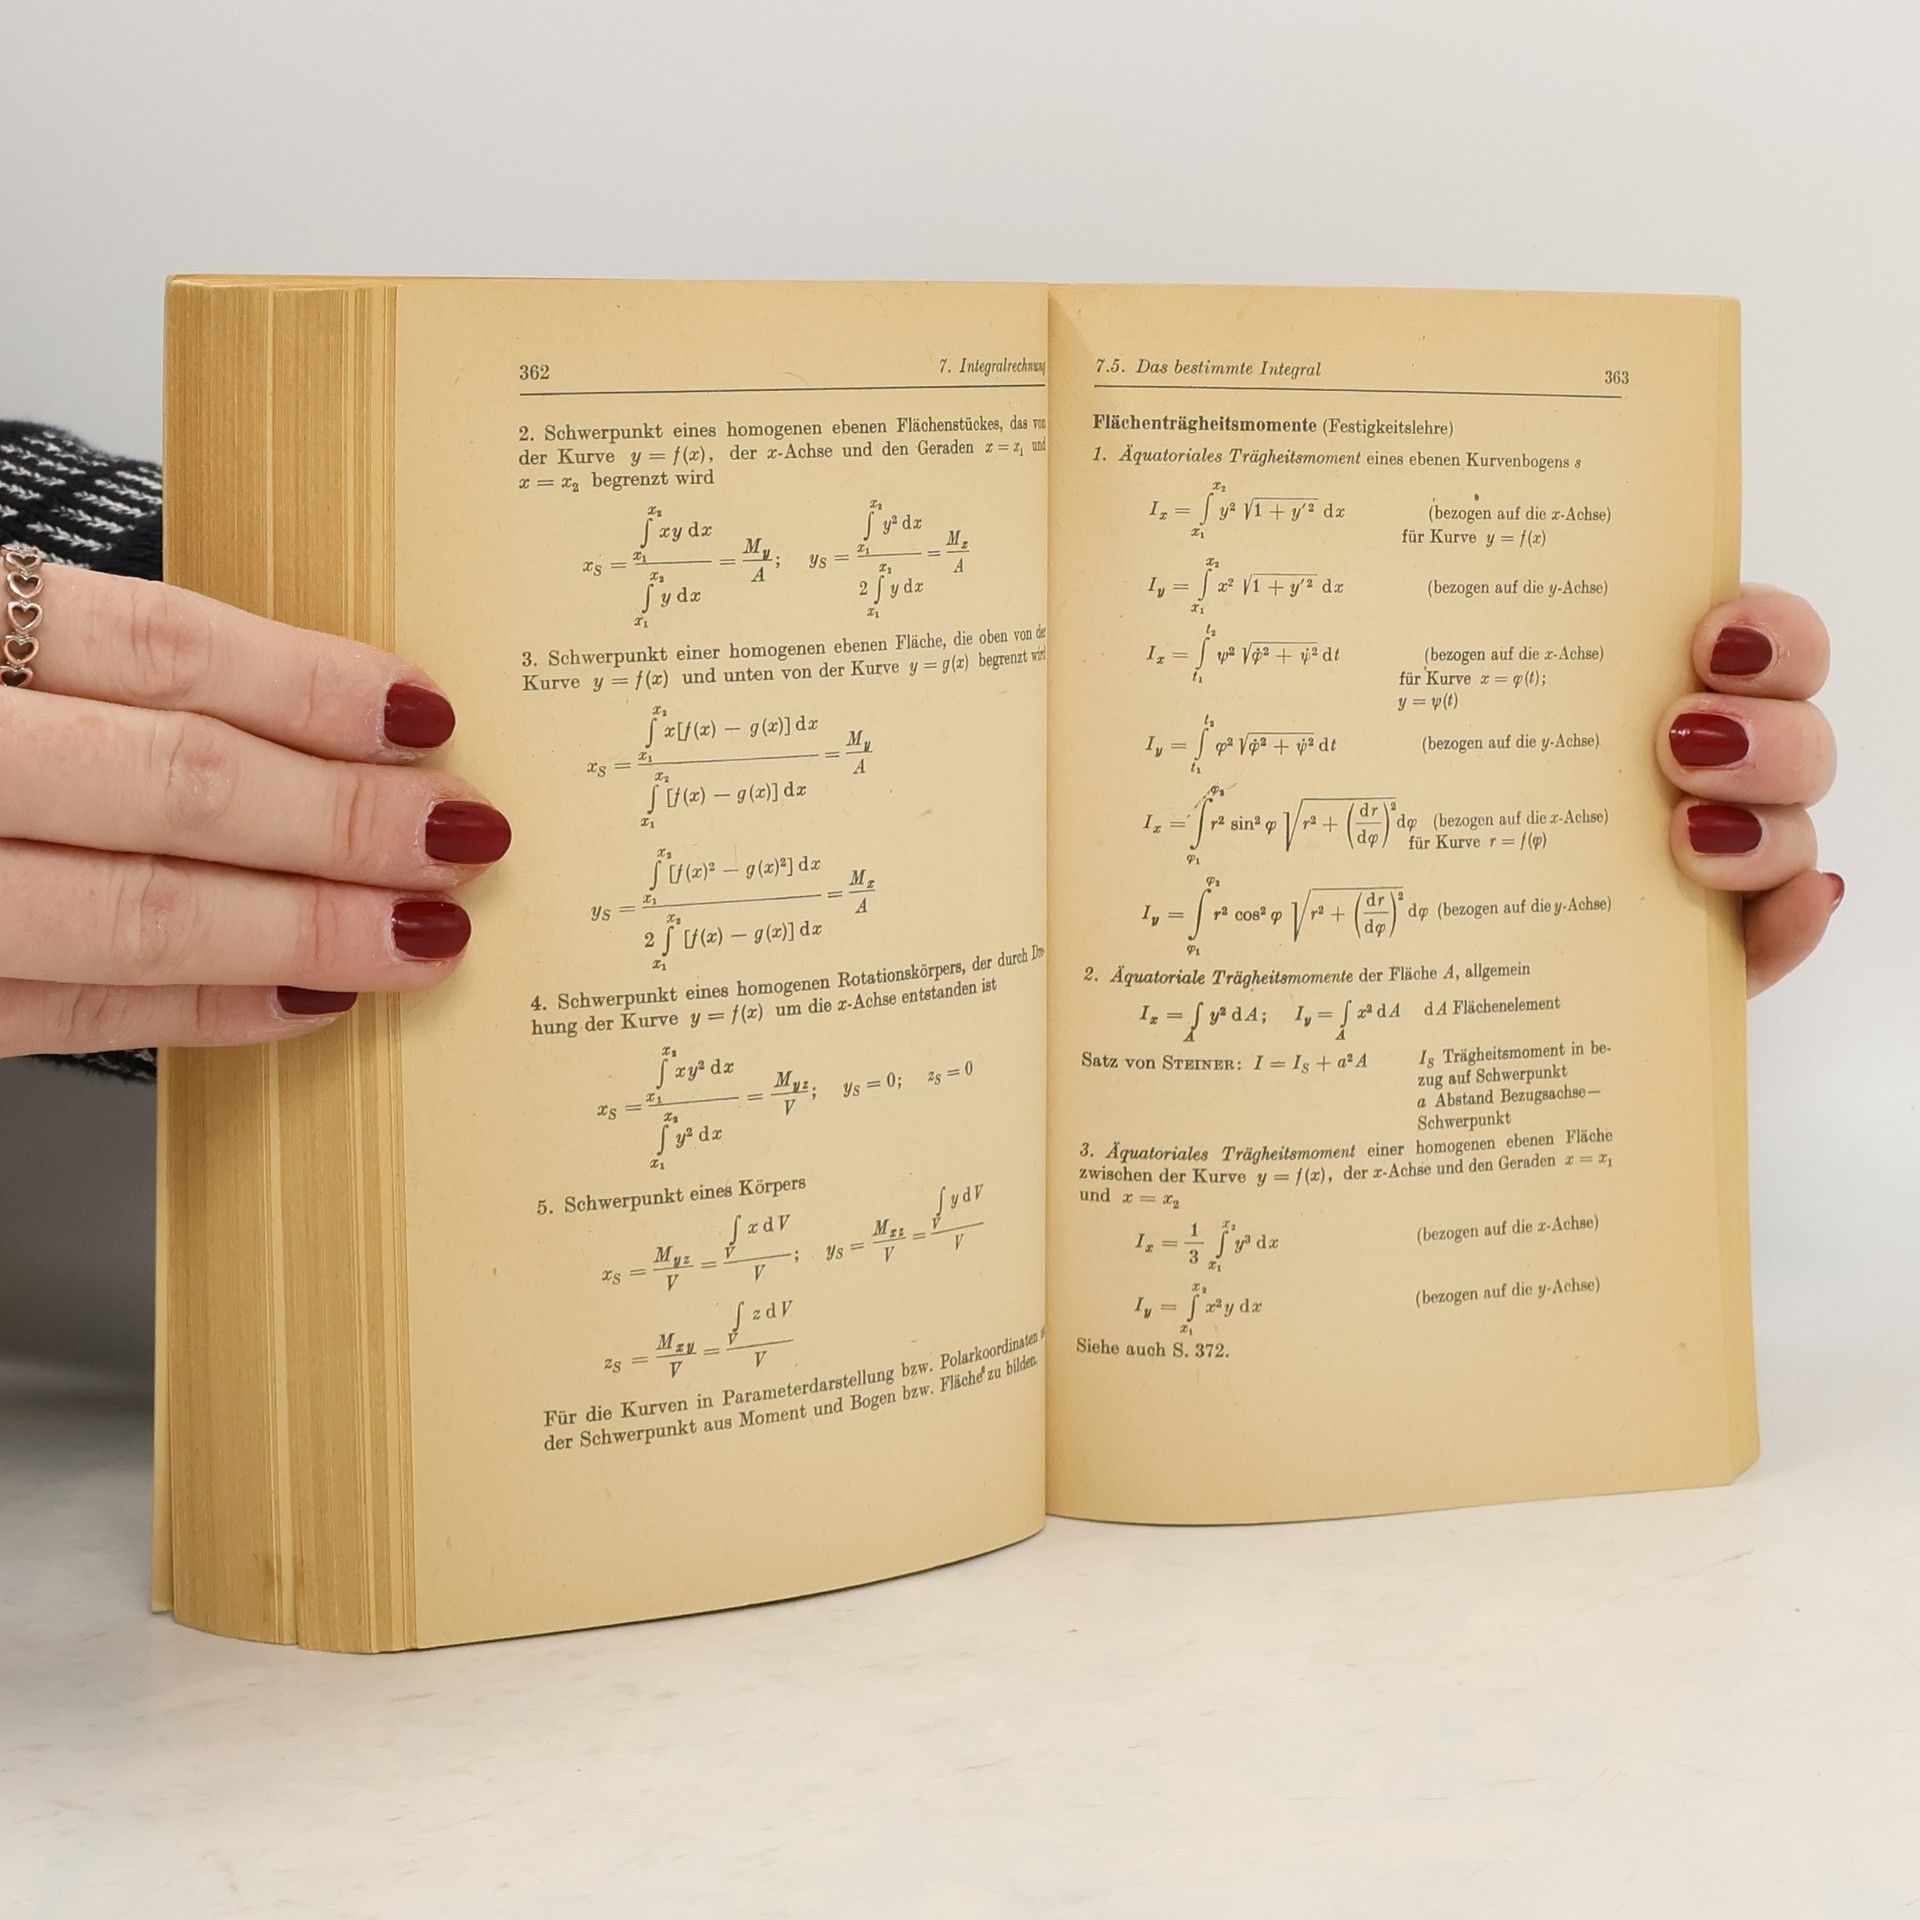 362 7. Integralrechnung
2. Schwerpunkt eines homogenen ebenen Flächenstückes, das von
der Kurve y = f(x), der x-Achse und den Geraden x = x₁ und
x = x₂ begrenzt wird
x_S = ∫_{x₁}^{x₂} xy dx / ∫_{x₁}^{x₂} y dx = M_y / A; y_S = ∫_{x₁}^{x₂} y² dx / 2 ∫_{x₁}^{x₂} y dx = M_x / A
3. Schwerpunkt einer homogenen ebenen Fläche, die oben von der
Kurve y = f(x) und unten von der Kurve y = g(x) begrenzt wird
x_S = ∫_{x₁}^{x₂} x[f(x) − g(x)] dx / ∫_{x₁}^{x₂} [f(x) − g(x)] dx = M_y / A
y_S = ∫_{x₁}^{x₂} [f(x)² − g(x)²] dx / 2 ∫_{x₁}^{x₂} [f(x) − g(x)] dx = M_x / A
4. Schwerpunkt eines homogenen Rotationskörpers, der durch Dre-
hung der Kurve y = f(x) um die x-Achse entstanden ist
x_S = ∫_{x₁}^{x₂} xy² dx / ∫_{x₁}^{x₂} y² dx = M_yz / V; y_S = 0; z_S = 0
5. Schwerpunkt eines Körpers
x_S = M_yz / V = ∫_V x dV / V; y_S = M_xz / V = ∫_V y dV / V
z_S = M_xy / V = ∫_V z dV / V
Für die Kurven in Parameterdarstellung bzw. Polarkoordinaten
der Schwerpunkt aus Moment und Bogen bzw. Fläche zu bilden.
7.5. Das bestimmte Integral 363
Flächenträgheitsmomente (Festigkeitslehre)
1. Äquatoriales Trägheitsmoment eines ebenen Kurvenbogens s
I_x = ∫_{x₁}^{x₂} y² √(1 + y′²) dx (bezogen auf die x-Achse)
für Kurve y = f(x)
I_y = ∫_{x₁}^{x₂} x² √(1 + y′²) dx (bezogen auf die y-Achse)
I_x = ∫_{t₁}^{t₂} ψ² √(φ̇² + ψ̇²) dt (bezogen auf die x-Achse)
für Kurve x = φ(t);
y = ψ(t)
I_y = ∫_{t₁}^{t₂} φ² √(φ̇² + ψ̇²) dt (bezogen auf die y-Achse)
I_x = ∫_{φ₁}^{φ₂} r² sin² φ √(r² + (dr/dφ)²) dφ (bezogen auf die x-Achse)
für Kurve r = f(φ)
I_y = ∫_{φ₁}^{φ₂} r² cos² φ √(r² + (dr/dφ)²) dφ (bezogen auf die y-Achse)
2. Äquatoriale Trägheitsmomente der Fläche A, allgemein
I_x = ∫_A y² dA; I_y = ∫_A x² dA dA Flächenelement
Satz von STEINER: I = I_S + a²A I_S Trägheitsmoment in be-
zug auf Schwerpunkt
a Abstand Bezugsachse—
Schwerpunkt
3. Äquatoriales Trägheitsmoment einer homogenen ebenen Fläche
zwischen der Kurve y = f(x), der x-Achse und den Geraden x = x₁
und x = x₂
I_x = 1/3 ∫_{x₁}^{x₂} y³ dx (bezogen auf die x-Achse)
I_y = ∫_{x₁}^{x₂} x²y dx (bezogen auf die y-Achse)
Siehe auch S. 372.